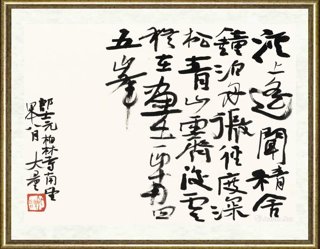 溪上遥聞精舍
鐘泊舟微徑度深
松青山霽後雲
猶在畫出西南四
五峯
郎士元柏林寺南望
八月 大